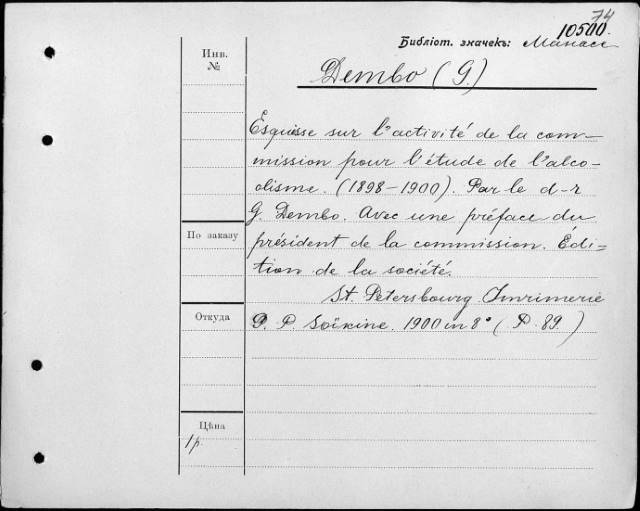 74
10500.
Библіот. значекъ: Манасе
Инв.
№
Dembo (G.)
Esquisse sur l'activité de la com-
mission pour l'étude de l'alco-
olisme. (1898-1900). Par le d-r
G. Dembo. Avec une préface du
président de la commission. Édi-
tion de la société.
St. Petersbourg. Imrimerie
P. P. Soïkine. 1900 in 8° (P. 89.)
По заказу
Откуда
Цѣна
1 р.